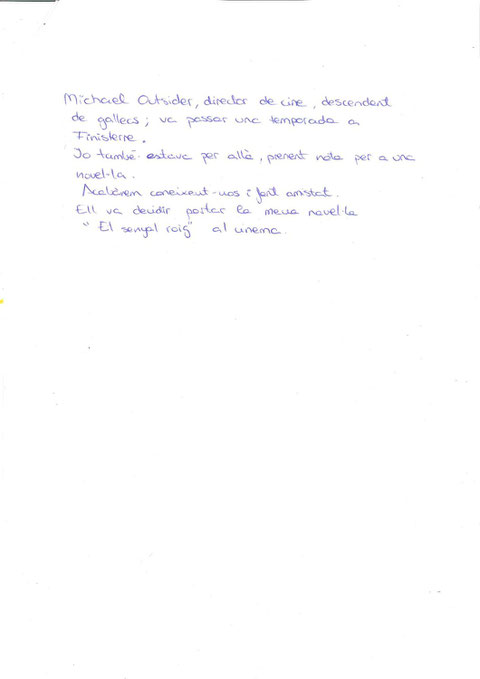 Michael Outsider, director de cine, descendent
de gallecs; va passar una temporada a
Finisterre.
Jo també estava per allà, prenent nota per a una
novel·la.
Acabàrem coneixent-nos i fent amistat.
Ell va decidir portar la meua novel·la
"El senyal roig" al cinema.